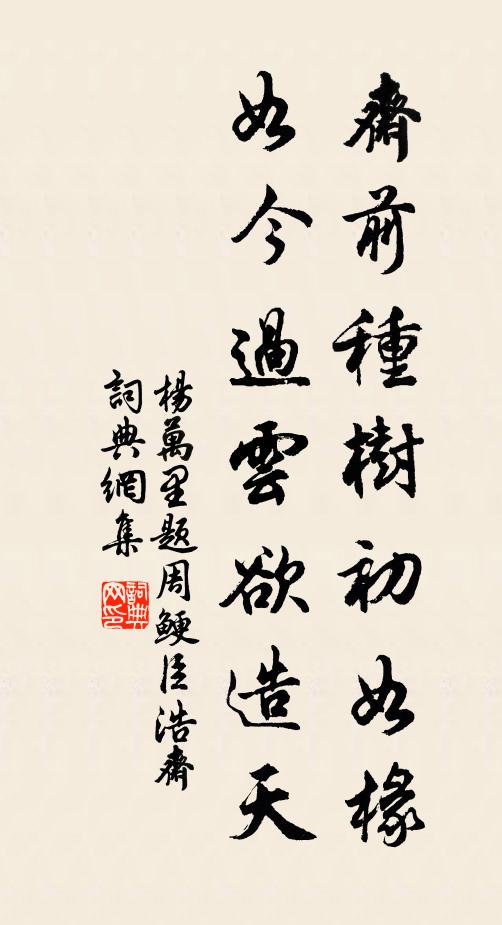 齋前種樹初如椽
如今過雲欲造天
楊萬里題周鯁臣浩齋
詞典網集
詞典网印